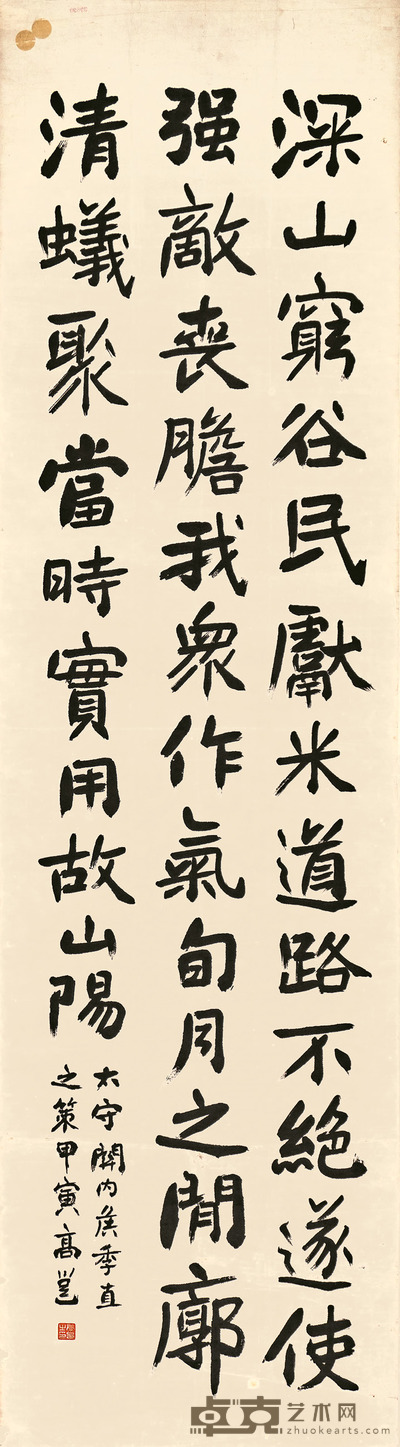 深山窮谷民獻米道路不絕遂使
强敵喪膽我衆作氣旬月之間廓
清蟻聚當時實用故山陽
太守關內侯季直
之策甲寅高邕
卓克艺术网
zhuokearts.com